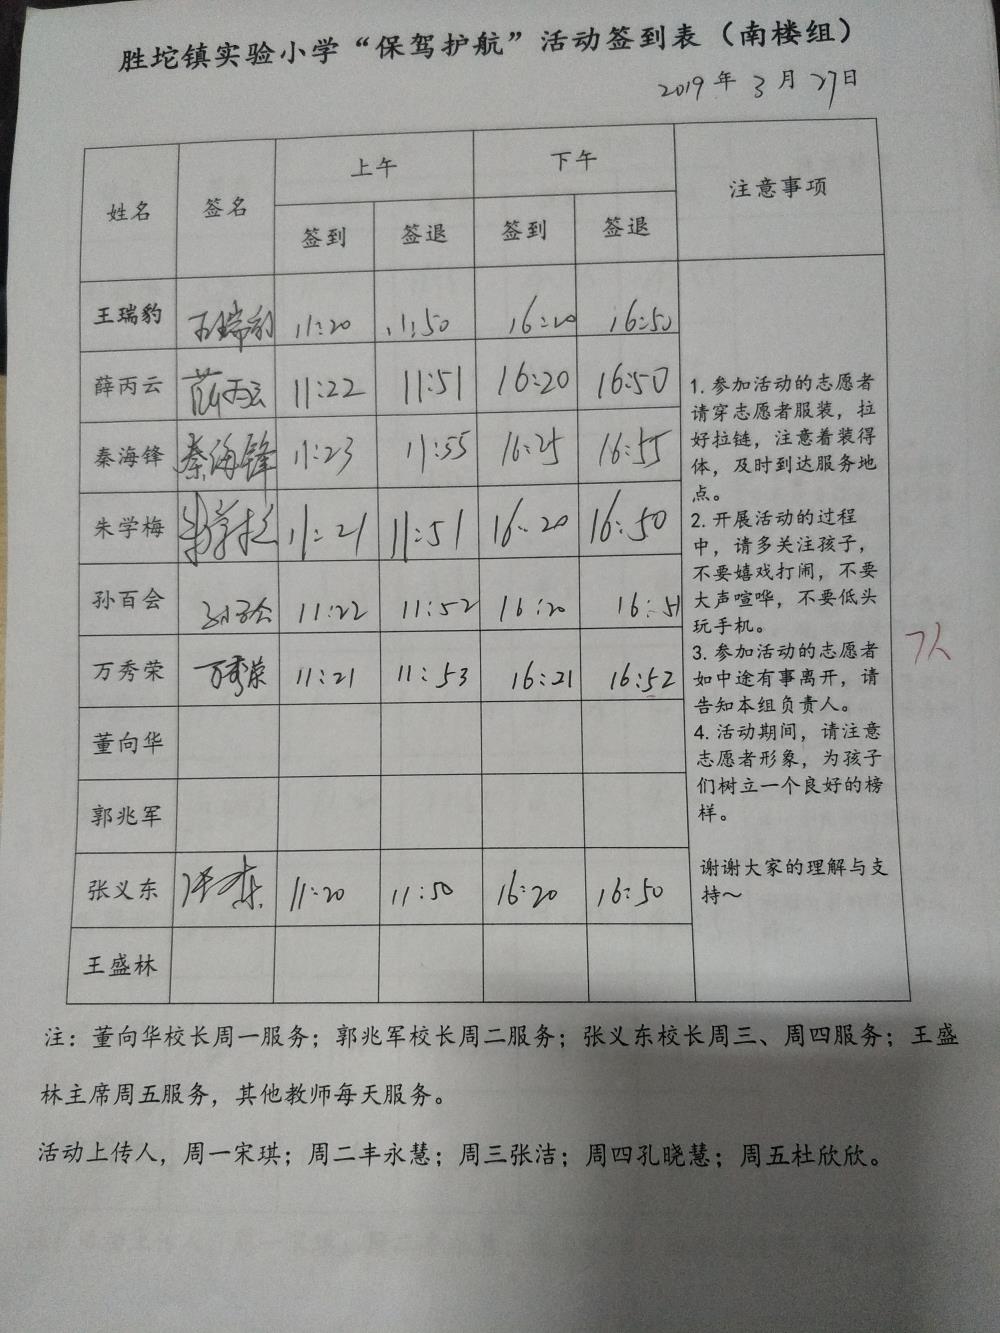 胜坨镇实验小学“保驾护航”活动签到表（南楼组）
2019年3月27日
姓名 签名 上午 下午 注意事项
签到 签退 签到 签退
王瑞豹 王瑞豹 11:20 11:50 16:20 16:50
薛丙云 薛丙云 11:22 11:51 16:20 16:50
秦海锋 秦海锋 11:23 11:55 16:25 16:55
朱学梅 朱学梅 11:21 11:51 16:20 16:50
孙百会 孙百会 11:22 11:52 16:20 16:51
万秀荣 万秀荣 11:21 11:53 16:21 16:52
董向华
郭兆军
张义东 张义东 11:20 11:50 16:20 16:50
王盛林
1. 参加活动的志愿者
请穿志愿者服装，拉
好拉链，注意着装得
体，及时到达服务地
点。
2. 开展活动的过程
中，请多关注孩子，
不要嬉戏打闹，不要
大声喧哗，不要低头
玩手机。
3. 参加活动的志愿者
如中途有事离开，请
告知本组负责人。
4. 活动期间，请注意
志愿者形象，为孩子
们树立一个良好的榜
样。
谢谢大家的理解与支
持～
7人
注：董向华校长周一服务；郭兆军校长周二服务；张义东校长周三、周四服务；王盛
林主席周五服务，其他教师每天服务。
活动上传人，周一宋琪；周二丰永慧；周三张洁；周四孔晓慧；周五杜欣欣。